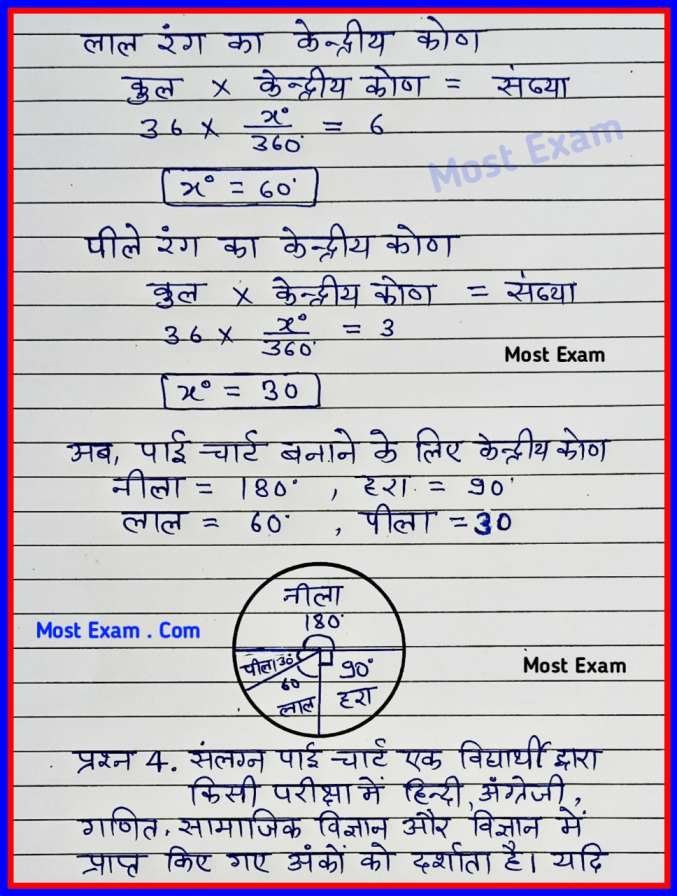 लाल रंग का केन्द्रीय कोण
कुल × केन्द्रीय कोण = संख्या
36 × x°/360° = 6
Most Exam
x° = 60°
पीले रंग का केन्द्रीय कोण
कुल × केन्द्रीय कोण = संख्या
36 × x°/360° = 3
Most Exam
x° = 30
अब, पाई चार्ट बनाने के लिए केन्द्रीय कोण
नीला = 180° , हरा = 90°
लाल = 60° , पीला = 30
नीला
180°
Most Exam . Com
पीला 30°
90°
Most Exam
60
लाल
हरा
प्रश्न 4. संलग्न पाई चार्ट एक विद्यार्थी द्वारा
किसी परीक्षा में हिन्दी, अंग्रेजी,
गणित, सामाजिक विज्ञान और विज्ञान में
प्राप्त किए गए अंकों को दर्शाता है। यदि